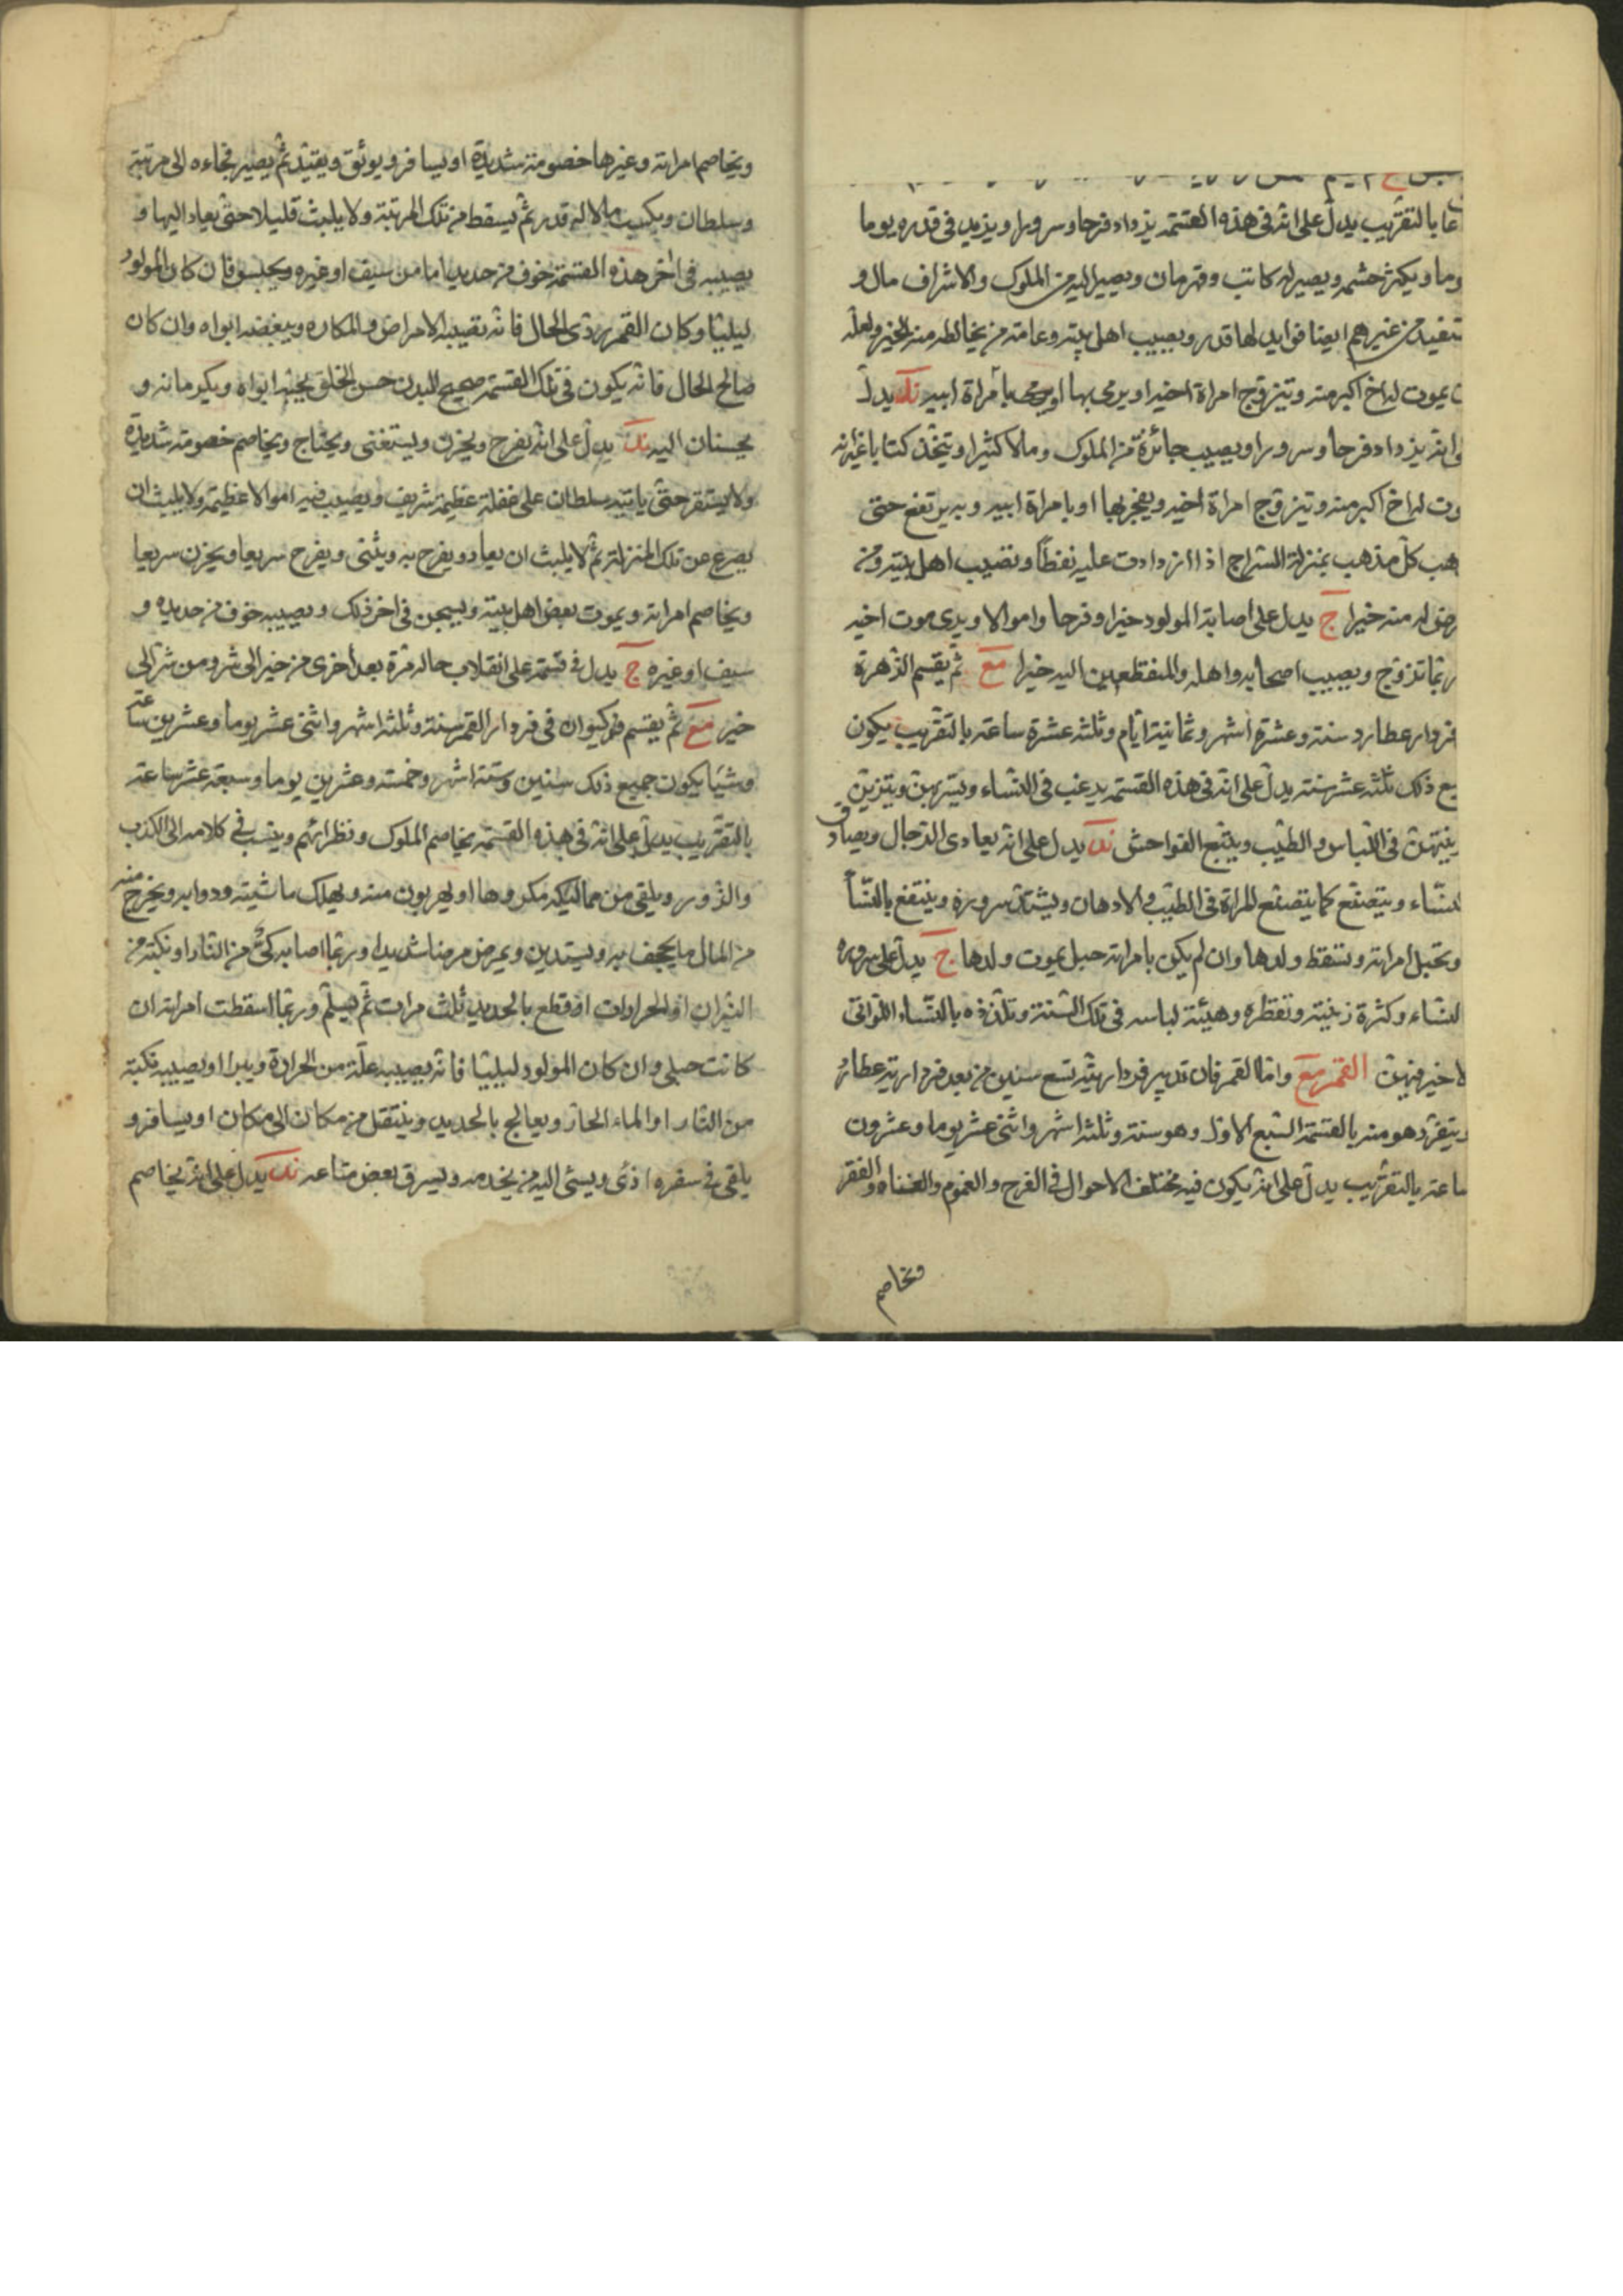 عا بالتقريب يدل على انه فى هذه القسمة يزداد فرحا وسرورا ويزيد فى قدره يوما
وما ويكثر حشمه ويصير له كاتب وقهرمان ويصير اليه من الملوك والاشراف مال و
من غيرهم ايضا فوايد لها قدر ويصيب اهل بيته وعامة من يخالطه منه الخير ولعله
يموت له اخ اكبر منه ويتزوج امراة اخيه او يرمى بها او يرمى بامراة ابيه ند يدل
انه يزداد فرحا وسرورا ويصيب جائزة من الملوك ومالا كثيرا ويتخذ كتابا غير انه
وت له اخ اكبر منه ويتزوج امراة اخيه ويفجر بها او بامراة ابيه وبه يرتفع حتى
هب كل مذهب بمنزلة السراج اذا ازدادت عليه نفطا ونصيب اهل بيته ومن
له منه خيرا ج يدل على اصابة المولود خيرا وفرحا واموالا ويرى موت اخيه
ربما تزوج ويصيب اصحابه واهله والمنقطعين اليه خيرا مع ثم يقسم الزهرة
فردار عطارد سنة وعشرة اشهر وثمانية ايام وثلثة عشرة ساعة بالتقريب يكون
ع ذلك ثلثة عشر سنة يدل على انه فى هذه القسمة يرغب فى النساء ويتزين
فى اللباس والطيب ويتبع الفواحش ند يدل على انه يعادى الرجال ويصادق
لنساء ويتصنع كما يتصنع المراة فى الطيب والادهان ويشتد سروره وينتفع بالنسا
وتحبل امراته وتسقط ولدها وان لم يكن بامراته حبل يموت ولدها ج يدل على سروره
لنساء وكثرة زينته وتعطره وهيئة لباسه فى تلك السنة وتلذذه بالنساء اللواتى
لا خير فيهن القمر مع واما القمر فان تدبير فرداريته تسع سنين من بعد فردارية عطارد
يتفرد هو منه بالقسمة السبع الاول وهو سنة وثلثة اشهر واثنى عشر يوما وعشرون
ساعة بالتقريب يدل على انه يكون فيه مختلف الاحوال فى الفرح والغموم والغناء والفقر
ويخاصم
ويخاصم امراته وغيرها خصومة شديدة او يسافر ويوثق ويقيد ثم يصير فجاءه الى مرتبة
وسلطان ويكسب مالا له قدر ثم يسقط من تلك المرتبة ولا يلبث قليلا حتى يعاد اليها و
يصيبه فى اخر هذه القسمة خوف من حديد اما من سيف او غيره ويحبس فان كان المولود
ليليا وكان القمر ردى الحال فانه تصيبه الامراض والمكاره ويبغضه ابواه وان كان
صالح الحال فانه يكون فى تلك القسمة صحيح البدن حسن الخلق يحبه ابواه ويكرمانه و
يحسنان اليه ند يدل على انه يفرح ويحزن ويستغنى ويحتاج ويخاصم خصومة شديدة
ولا يستقر حتى ياتيه سلطان على غفلة عظيم شريف ويصيب فيه اموالا عظيمة ولا يلبث ان
يصرع عن تلك المنزلة ثم لا يلبث ان يعاد ويفرح به ويثنى ويفرح سريعا ويحزن سريعا
ويخاصم امراته ويموت بعض اهل بيته ويسجن فى اخر ذلك ويصيبه خوف من حديده و
سيف او غيره ج يدل فى قسمته على انقلاب حاله مرة بعد اخرى من خير الى شر ومن شر الى
خير مع ثم يقسم كيوان فى فردار القمر سنة وثلثة اشهر واثنى عشر يوما وعشرين ساعة
وشيئا يكون جميع ذلك سنين وستة اشهر وخمسة وعشرين يوما وسبعة عشر ساعة
بالتقريب يدل على انه فى هذه القسمة يخاصم الملوك ونظرائهم وينسب فى كلامه الى الكذب
والزور ويلقى من مماليكه مكروها او يهربون منه ويهلك ماشيته ودوابه ويخرج منه
من المال ما يجحف به ويستدين ويمرض مرضا شديدا وربما اصابه كى من النار او نكبة من
النيران او الحرارات او قطع بالحديد ثلث مرات ثم يسلم وربما اسقطت امراته ان
كانت حبلى وان كان المولود ليليا فانه يصيبه علة من الحرارة ويبرا او يصيبه نكبة
من النار او الماء الحار ويعالج بالحديد وينتقل من مكان الى مكان او يسافر و
يلقى فى سفره اذى ويسئ اليه من يخدمه ويسرق بعض متاعه ند يدل على انه يخاصم